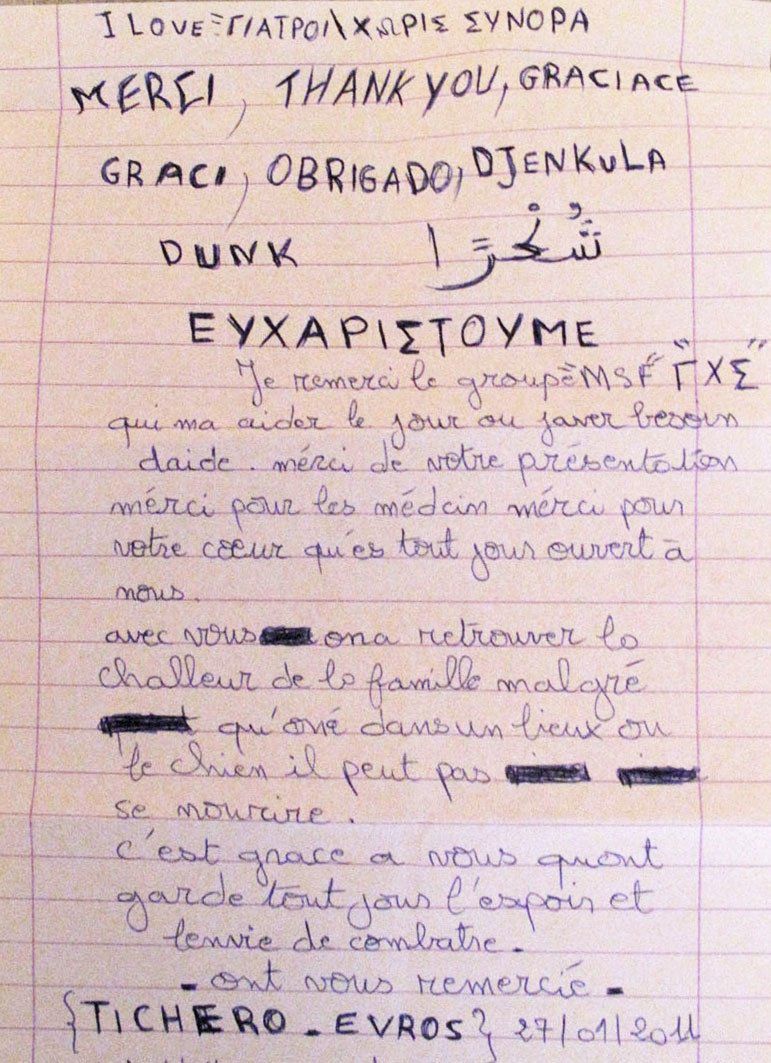 I LOVE "ΓΙΑΤΡΟΙ\ ΧΩΡΙΣ ΣΥΝΟΡΑ
MERCI, THANK YOU, GRACIACE
GRACI, OBRIGADO, DJENKULA
DUNK شُكْرًا
ΕΥΧΑΡΙΣΤΟΥΜΕ
Je remerci le groupe "MSF" "ΓΧΣ"
qui ma aider le jour ou javer besoin
daide. mérci de votre présentation
mérci pour les médcin mérci pour
votre coeur qu'es tout jour ouvert à
nous.
avec vous ona retrouver la
challeur de la famille malgré
qu'oné dans un lieux ou
le chien il peut pas
se nourire.
c'est grace a vous quont
garde tout jours l'espoir et
lenvie de combatre.
- ont vous remercie -
{TICHERO - EVROS} 27/01/2011